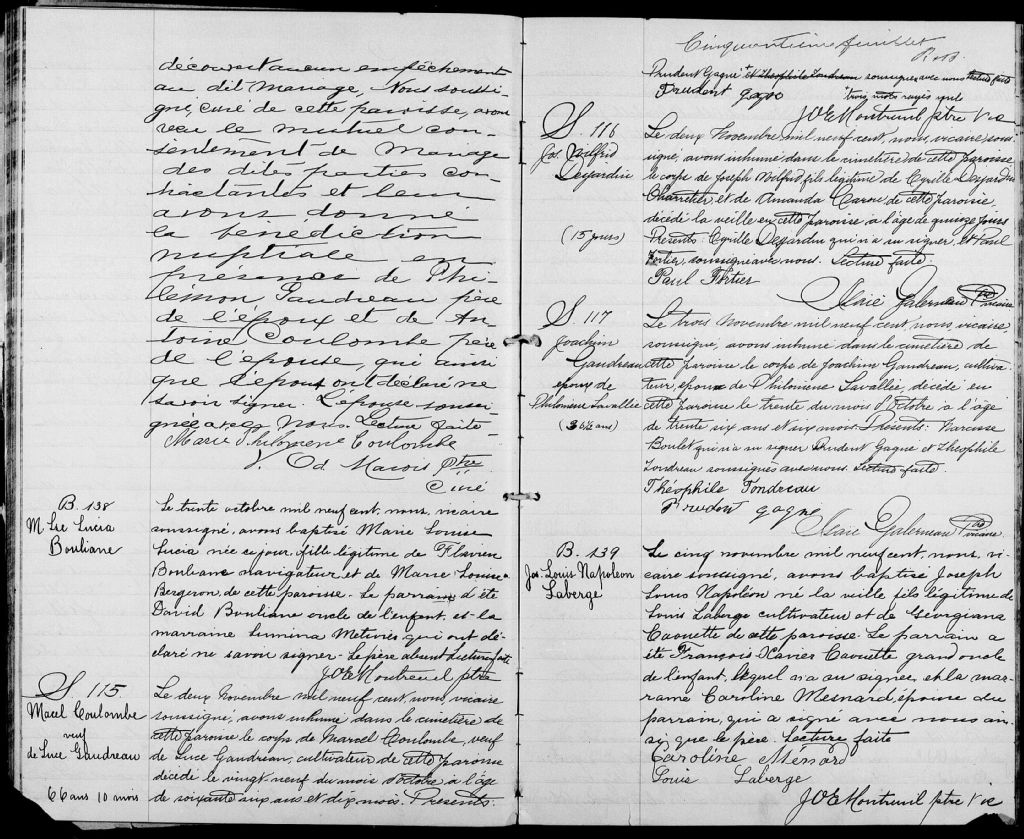 découvert aucun empêchement
au dit mariage, Nous soussi-
gné, curé de cette paroisse, avons
reçu le mutuel con-
sentement de mariage
des dites parties con-
tractantes et leur
avons donné
la bénédiction
nuptiale en
présence de Phi-
lémon Gaudreau père
de l'époux et de An-
toine Coulombe père
de l'épouse, qui ainsi
que l'époux ont déclaré ne
savoir signer. L'épouse soussi-
gnée avec nous. Lecture faite
Marie Philomène Coulombe
V. Od. Marois Ptre
Curé
B. 138
M Lse Lucia
Bouliane
Le trente octobre mil neuf cent, nous, vicaire
soussigné, avons baptisé Marie Louise
Lucia née ce jour, fille légitime de Flavien
Bouliane navigateur et de Marie-Louise
Bergeron, de cette paroisse. Le parrain a été
David Bouliane oncle de l'enfant, et la
marraine Lumina Metivier qui ont dé-
claré ne savoir signer - Le père absent Lecture faite
JOE Montreuil ptre
S. 115
Macel Coulombe
veuf
de Luce Gaudreau
66 ans 10 mois
Le deux Novembre mil neuf cent, nous, vicaire
soussigné, avons inhumé dans le cimetière de
cette paroisse le corps de Marcel Coulombe, veuf
de Luce Gaudreau, cultivateur de cette paroisse
décédé le vingt-neuf du mois d'octobre à l'âge
de soixante six ans et dix mois. Presents:
Cinquantième feuillet
Prudent Gagné + et Théophile Tondreau soussignés avec nous Lecture faite
Prudent gagne trois mots rayés nuls
JOE Montreuil ptre Vic
S. 116
Jos. Wilfrid
Desjardin
(15 jours)
Le deux Novembre mil neuf cent, nous, vicaire sous-
signé, avons inhumé dans le cimetière de cette paroisse
le corps de Joseph Wilfrid fils légitime de Cyrille Desjardin
Charretier, et de Amanda Caron de cette paroisse,
décédé la veille en cette paroisse à l'âge de quinze jours
Présents: Cyrille Desjardin qui n'a su signer, et Paul
Fortier, soussigné avec nous. Lecture faite.
Paul Fortier
Alaie Galerneau Ptre vicaire
S. 117
Joachim
Gaudreau
époux de
Philomène Lavallée
(36½ ans)
Le trois Novembre mil neuf cent, nous, vicaire
soussigné, avons inhumé dans le cimetière de
cette paroisse le corps de Joachim Gaudreau, cultiva-
teur, époux de Philomène Lavallée, décédé en
cette paroisse le trente du mois d'Octobre à l'âge
de trente six ans et six mois. Présents: Narcisse
Boulet qui n'a su signer Prudent Gagné et Théophile
Tondreau soussignés avec nous. Lecture faite.
Théophile Tondreau
Prudent gagne
Alaie Galerneau Ptre vicaire
B. 139
Jos. Louis Napoléon
Laberge
Le cinq novembre mil neuf cent, nous, vi-
caire soussigné, avons baptisé Joseph
Louis Napoléon né la veille fils légitime de
Louis Laberge cultivateur et de Géorgiana
Caouette de cette paroisse. Le parrain a
été François Xavier Caouette grand oncle
de l'enfant, lequel n'a su signer, et la mar-
raine Caroline Mesnard, épouse du
parrain, qui a signé avec nous ain-
si que le père. Lecture faite
Caroline Ménard
Louis Laberge
JOE Montreuil ptre Vic